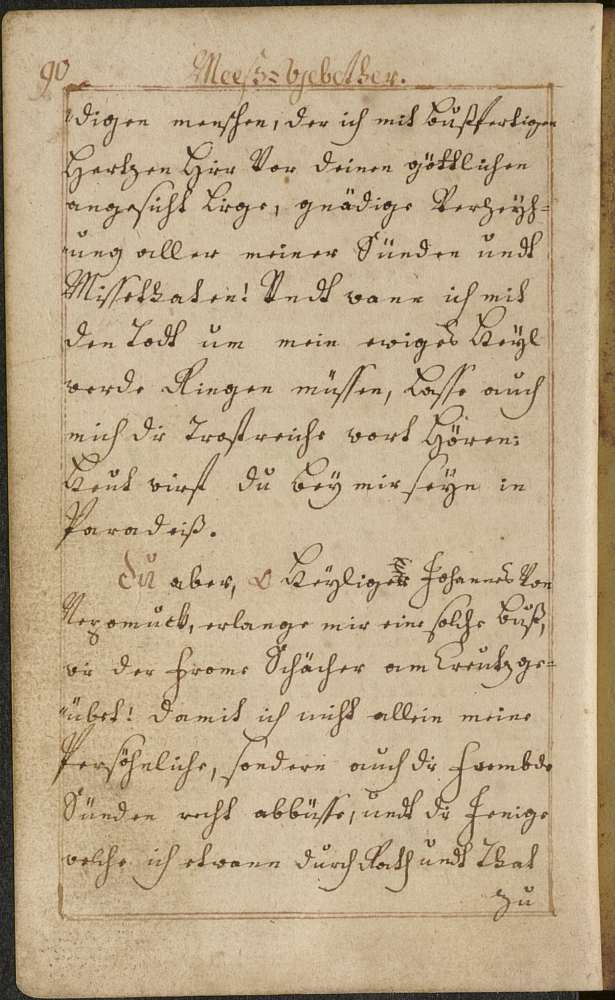 90 Meeß=Gebether.
digen menschen, der ich mit bußfertigen
Hertzen Hier Vor deinen göttlichen
angesicht Lige, gnädige Verzeyh=
ung aller meiner Sünden undt
Missethaten! Undt wann ich mit
den Todt um mein ewiges Heyl
werde Ringen müssen, Lasse auch
mich die Trostreiche wort Hören:
Heut wirst du bey mir seyn in
Paradeiß.
Du aber, O Heyliger Johannes Von
Nepomuck, erlange mir eine solche buß,
wie der frome Schächer am Creutz ge=
übet! damit ich nicht allein meine
Persöhnliche, sondern auch die frembde
Sünden recht abbüsse, undt die Jenige
welche ich etwann durch Rath undt That
zu